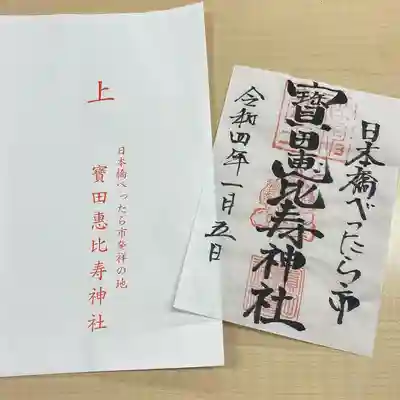 上
日本橋べったら市発祥の地
寶田惠比寿神社
日本橋べったら市
寶田恵比寿神社
令和四年一月五日